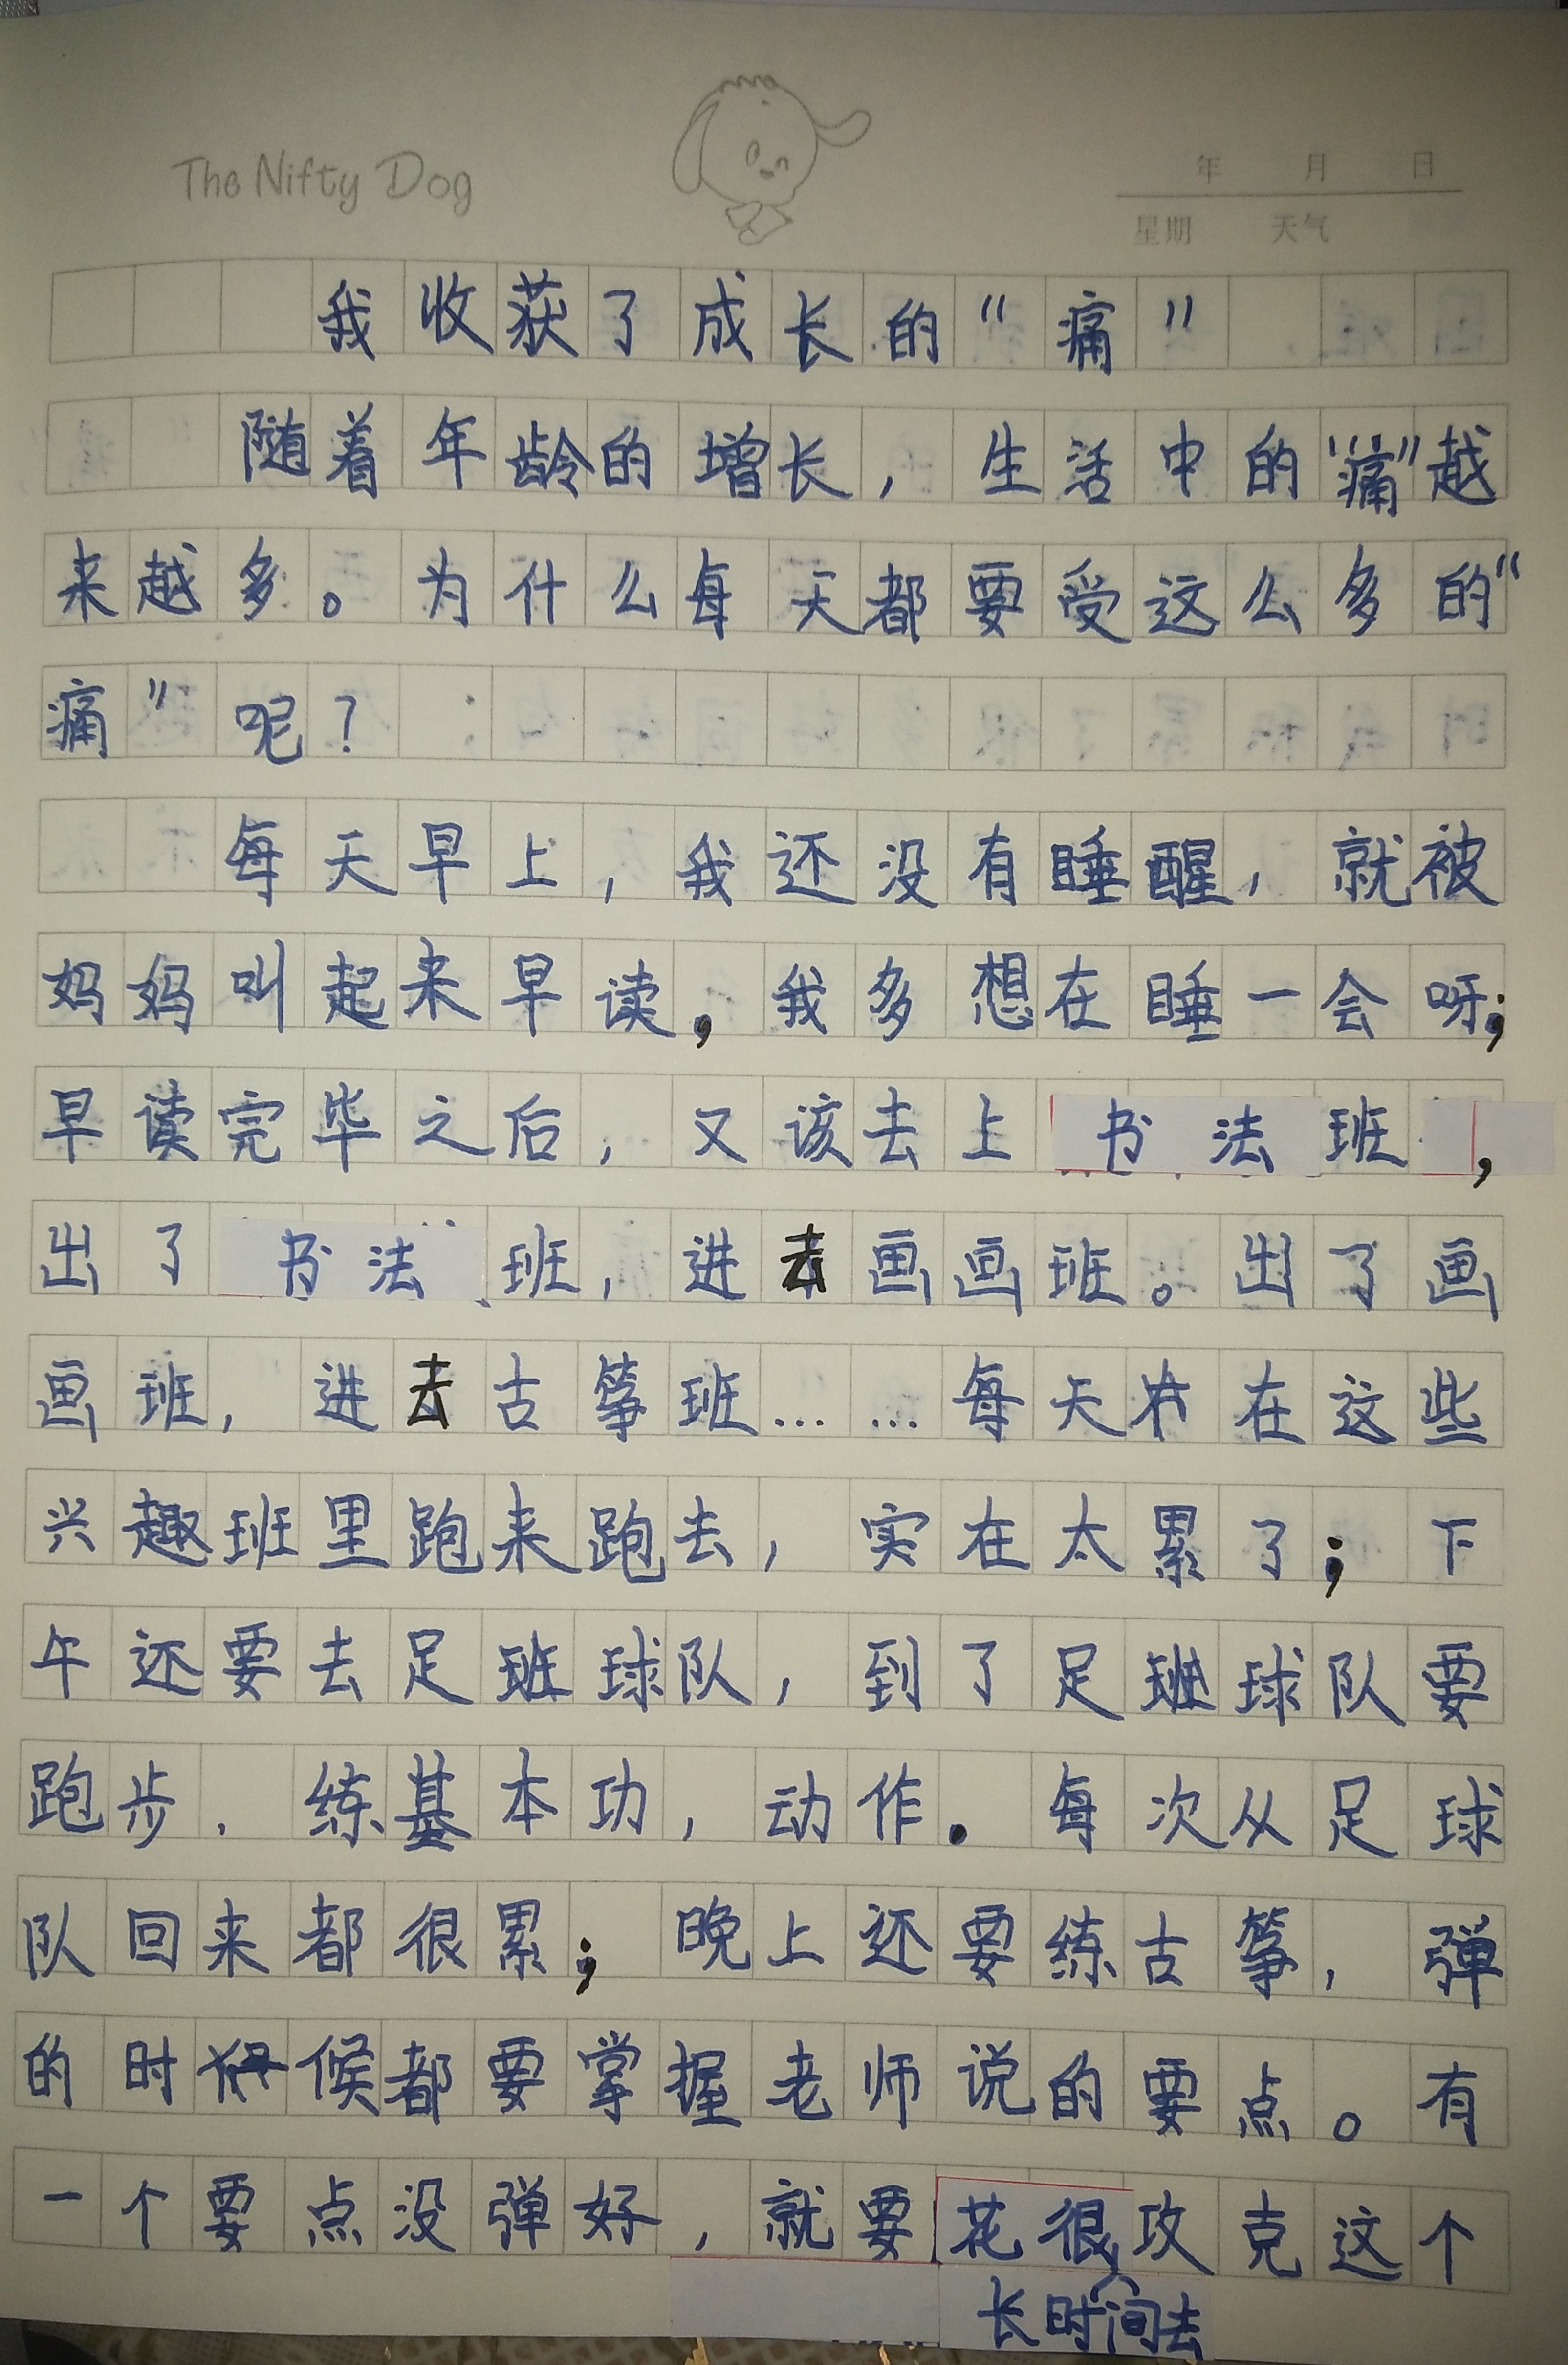 The Nifty Dog
年 月 日
星期 天气
我收获了成长的“痛”
随着年龄的增长，生活中的“痛”越
来越多。为什么每天都要受这么多的“
痛”呢？
每天早上，我还没有睡醒，就被
妈妈叫起来早读，我多想在睡一会呀；
早读完毕之后，又该去上书法班，
出了书法班，进去画画班。出了画
画班，进去古筝班……每天在这些
兴趣班里跑来跑去，实在太累了；下
午还要去足球队，到了足球队要
跑步、练基本功，动作。每次从足球
队回来都很累；晚上还要练古筝，弹
的时候都要掌握老师说的要点。有
一个要点没弹好，就要花很攻克这个
长时间去